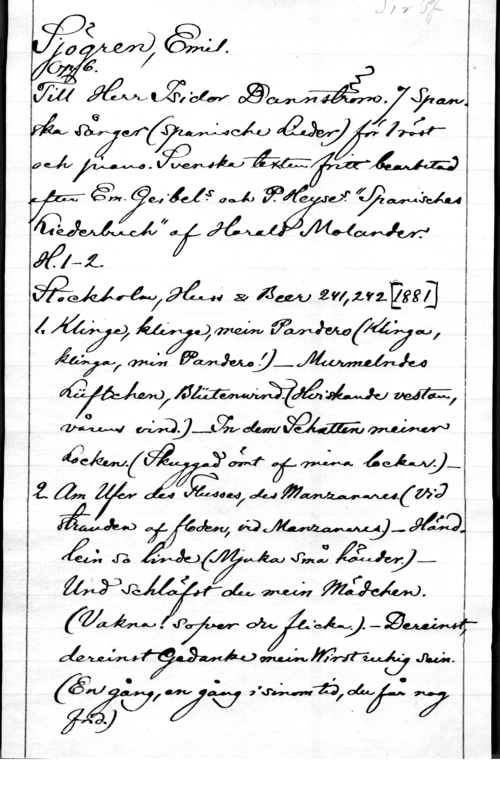 Sjögren, Emil.
Op. 6.
Till Herr Isidor Dannström. 7 Span-
ska sånger (Spanische Lieder) för 1 röst
och piano. Svenska texten fritt bearbetad
efter Em. Geibels och P. Heyses "Spanisches
Liederbuch" af Harald Molander.
H. 1-2.
Stockholm, Huss & Beer 241, 242 [1881]
1. Klinge, klinge, mein Pandero (Klinga,
klinga, min Pandero!) — Murmelndes
Lüftchen, Blütenwind. (Hviskande vestan,
vårens vind.) — In dem Schatten meiner
Locken. (Skuggad ömt af mina lockar.) —
2. Am Ufer des Flusses, des Manzanares (Vid
stranden af floden, vid Manzanares) — Händ-
lein so linde (Mjuka små händer.) —
Und schläfst du mein Mädchen.
(Vakna! Sofver du flicka.). — Dereinst,
dereinst Gedanke mein Wirst ruhig sein.
(En gång, en gång i sinom tid, du får nog
frid.)